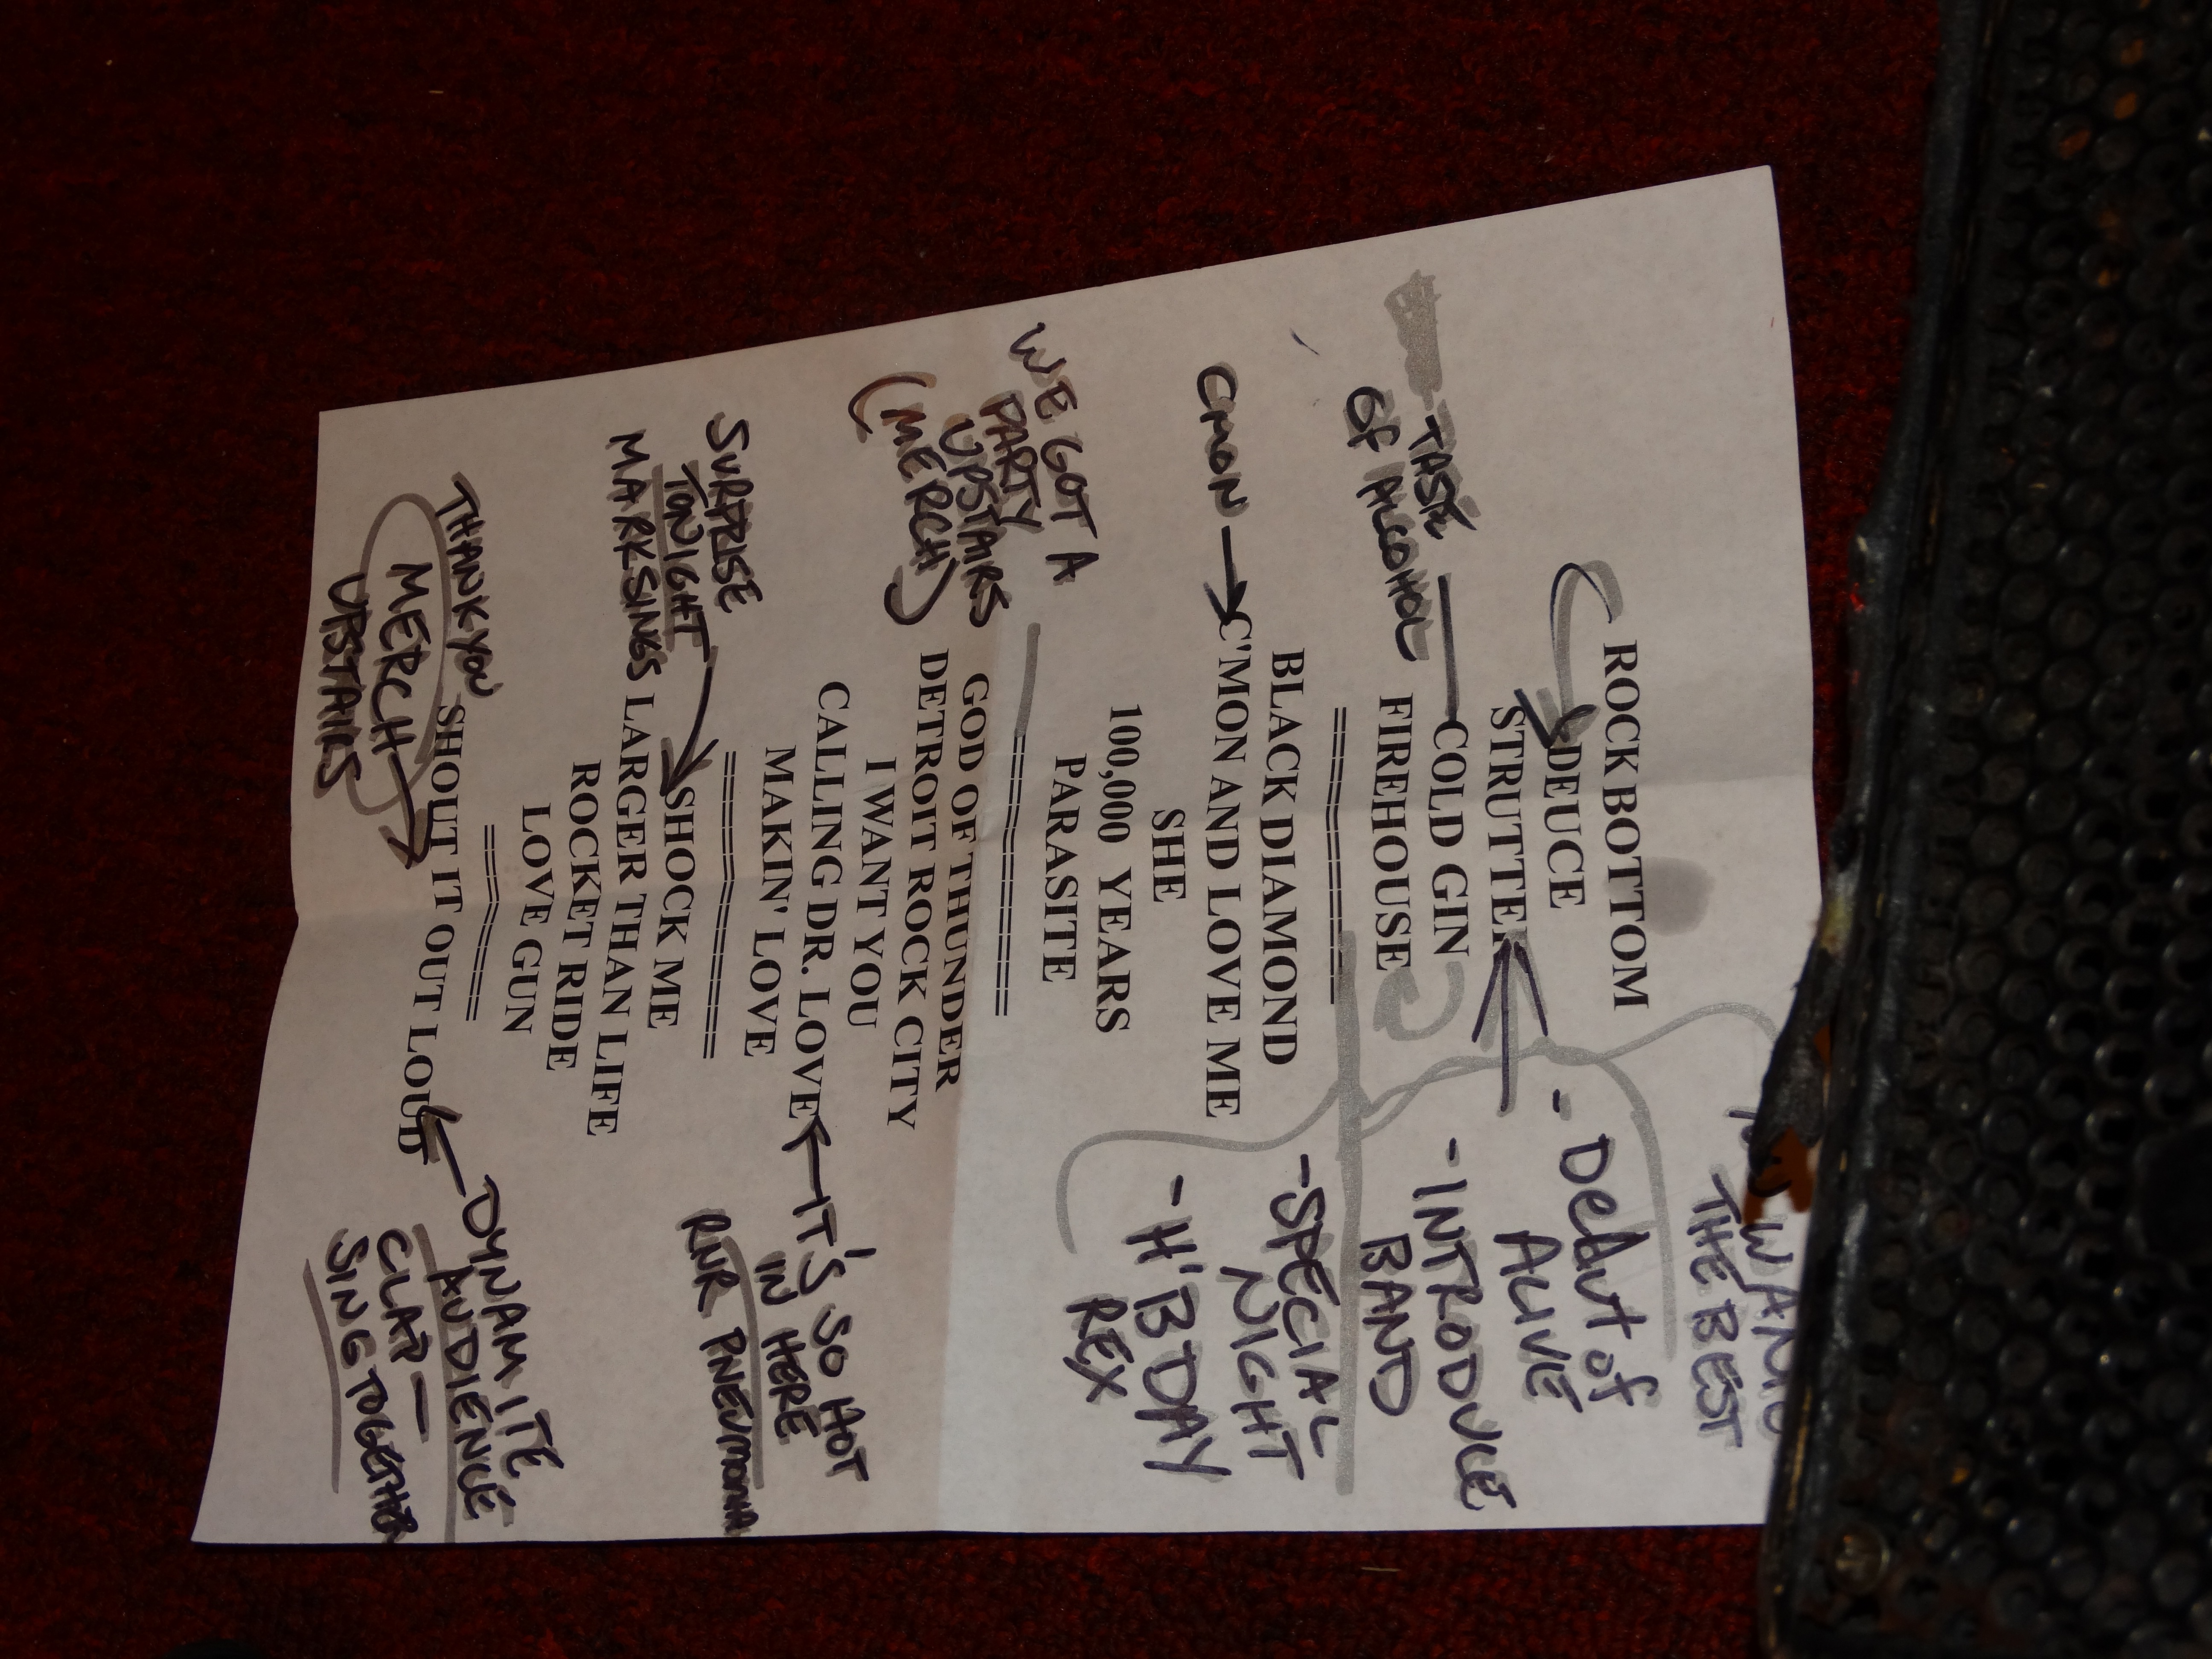 THE BEST
ROCK BOTTOM
DEUCE
- Debut of
ALIVE
STRUTTER
- INTRODUCE
BAND
TASTE
Of ALCOHOL
COLD GIN
FIREHOUSE
==================
- SPECIAL
NIGHT
BLACK DIAMOND
CMON → C'MON AND LOVE ME
- H'BDAY
REX
SHE
100,000 YEARS
PARASITE
WE GOT A
PARTY
UPSTAIRS
(MERCH)
==================
GOD OF THUNDER
DETROIT ROCK CITY
I WANT YOU
CALLING DR. LOVE ← IT'S SO HOT
IN HERE
RNR PNEUMONIA
MAKIN' LOVE
==================
SURPRISE
TONIGHT → SHOCK ME
MARK SINGS LARGER THAN LIFE
ROCKET RIDE
LOVE GUN
============
THANK YOU
MERCH →
UPSTAIRS
SHOUT IT OUT LOUD ← DYNAMITE
AUDIENCE
CLAP —
SING TOGETHER